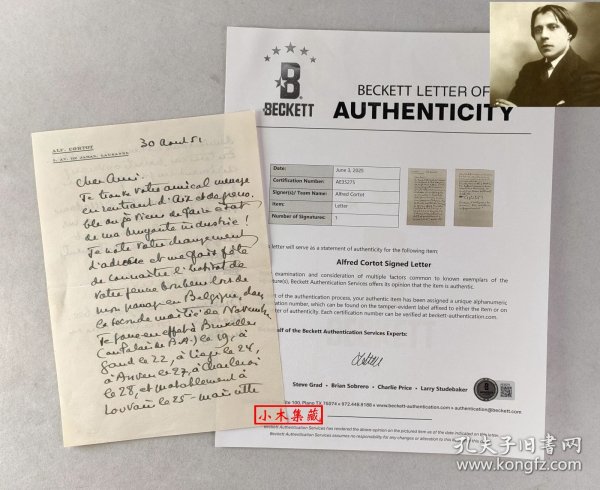 ALF. CORTOT
30 Aout 51
Cher Ami.
Je trouve votre amical message
en rentrant d'Aix et de
où je viens de faire état
de ma bruyante industrie !
Je note votre changement
d'adresse et me fais fête
de connaître l'habitat de
votre jeune bonheur lors de
mon passage en Belgique, dans
la seconde moitié de Novembre
Je joue en effet à Bruxelles
(au Palais de B.A.) le 19, à
Gand le 22, à Liège le 24,
à Anvers le 27, à Charleroi
le 28, et notablement à
Louvain le 25 - mais cette
B
BECKETT
BECKETT LETTER OF
AUTHENTICITY
Date: June 3, 2025
Certification Number: AE35275
Signer(s)/ Team Name: Alfred Cortot
Item: Letter
Number of Signatures: 1
letter will serve as a statement of authenticity for the following item:
Alfred Cortot Signed Letter
examination and consideration of multiple factors common to known exemplars of the
ture(s), Beckett Authentication Services offers its opinion that the item is authentic.
t of the authentication process, your authentic item has been assigned a unique alphanumeric
cation number, which can be found on the tamper-evident label affixed to either the item or on the
of authenticity. Each certification number can be verified at beckett-authentication.com.
half of the Beckett Authentication Services Experts:
Steve Grad • Brian Sobrero • Charlie Price • Larry Studebaker
100, Plano TX 75074 • 972.448.9188 • www.beckett-authentication.com • authentication@beckett.com
Beckett Authentication Services has rendered the above opinion on the pictured item as of the date indicated on this letter.
Beckett Authentication Services assumes no responsibility for any changes or alteration to this item
小木集藏
孔夫子旧书网
www.kongfz.com